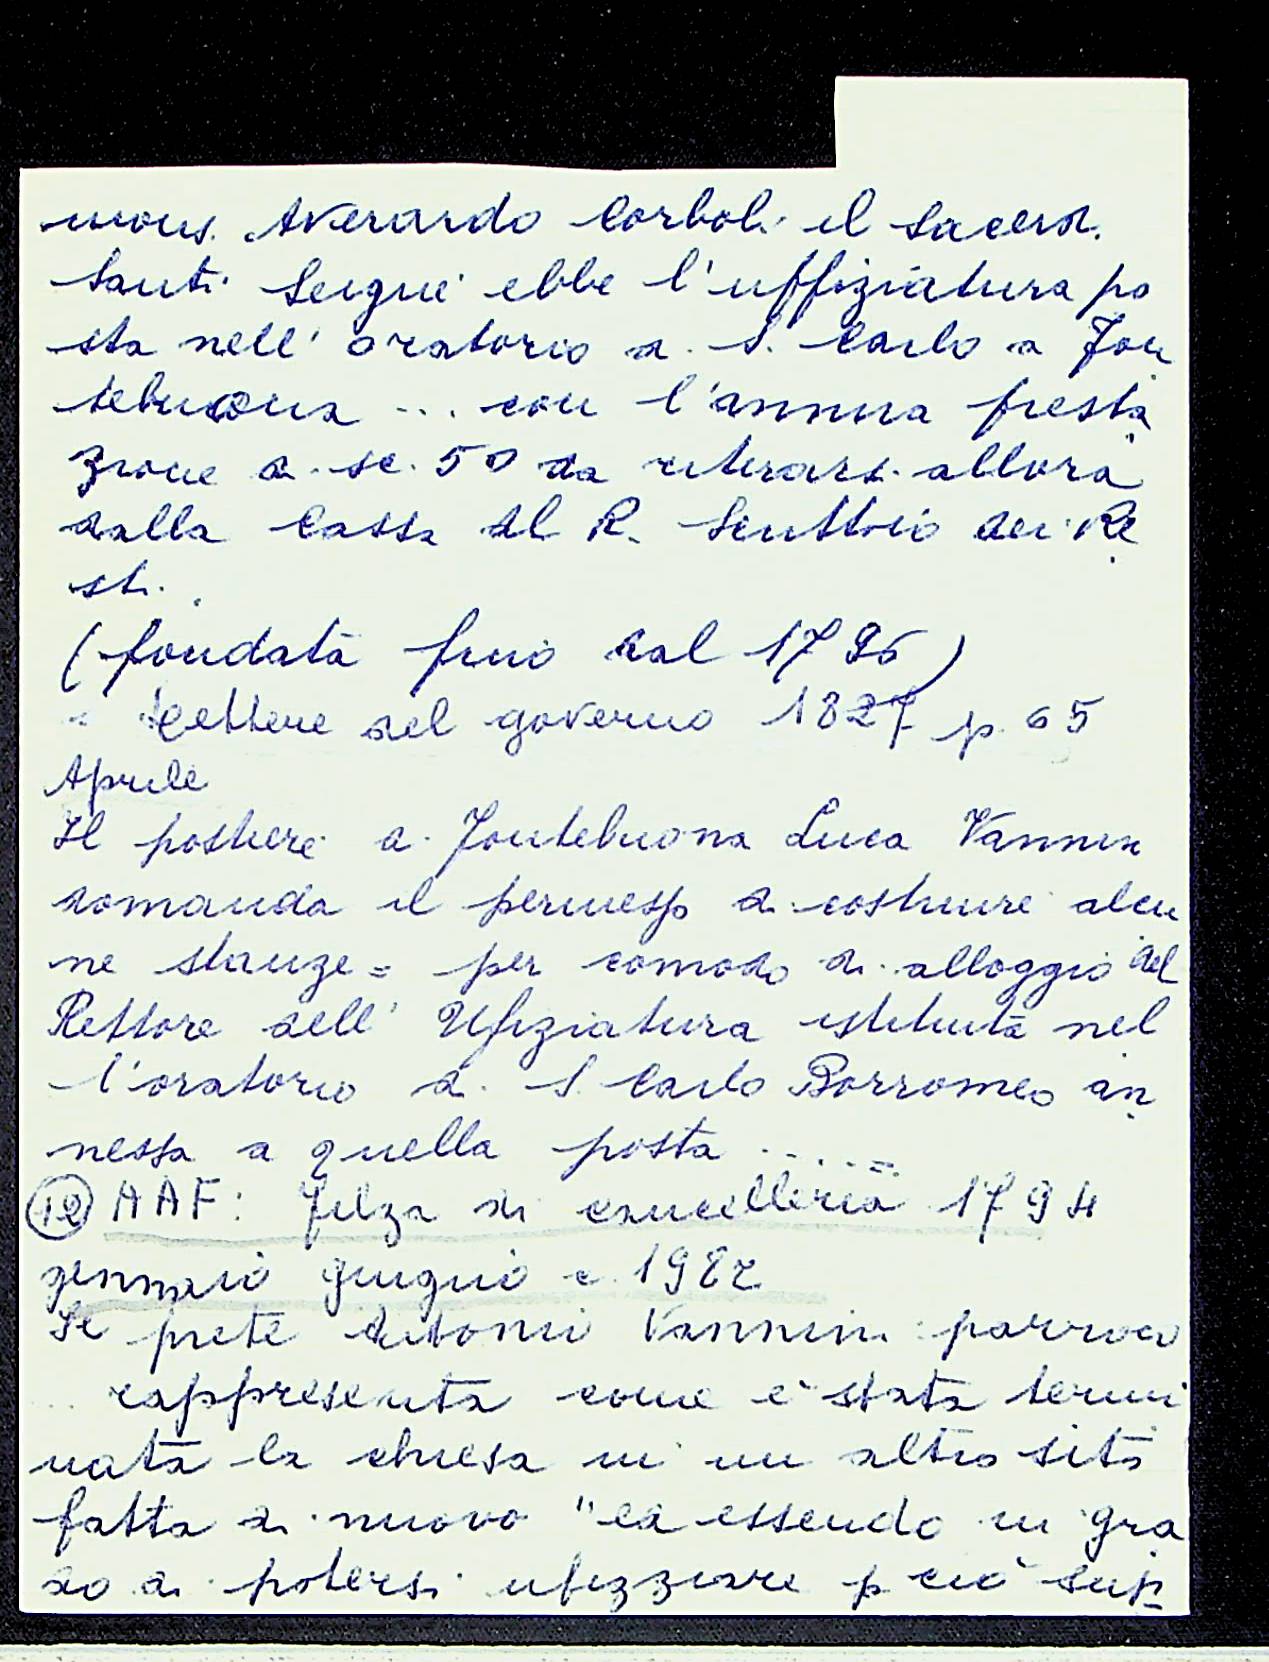 mons. Averardo Corboli il Sacerd.
Santi Seigue ebbe l'uffiziatura po
sta nell'oratorio di S. Carlo a Fon
tebuona ... con l'annua presta
zione di sc. 50 da ritirarsi allora
dalla Cassa del R. Scrittoio dei Re
sti.
(fondata fino dal 1796)
Lettere del governo 1827 p. 65
Aprile
Il postiere di Fontebuona Luca Vannini
domanda il permesso di costruire alcu
ne stanze = per comodo di alloggio del
Rettore dell'Ufiziatura istituita nel
l'oratorio di S. Carlo Borromeo an
nessa a quella posta ..... =
(12) AAF: Filza di cancelleria 1794
gennaio giugno c. 1982
Il prete Antonio Vannini parroco
... rappresenta come è stata termi
nata la chiesa in un altro sito
fatta di nuovo "ed essendo in gra
do di potersi ufizziare p ciò sup